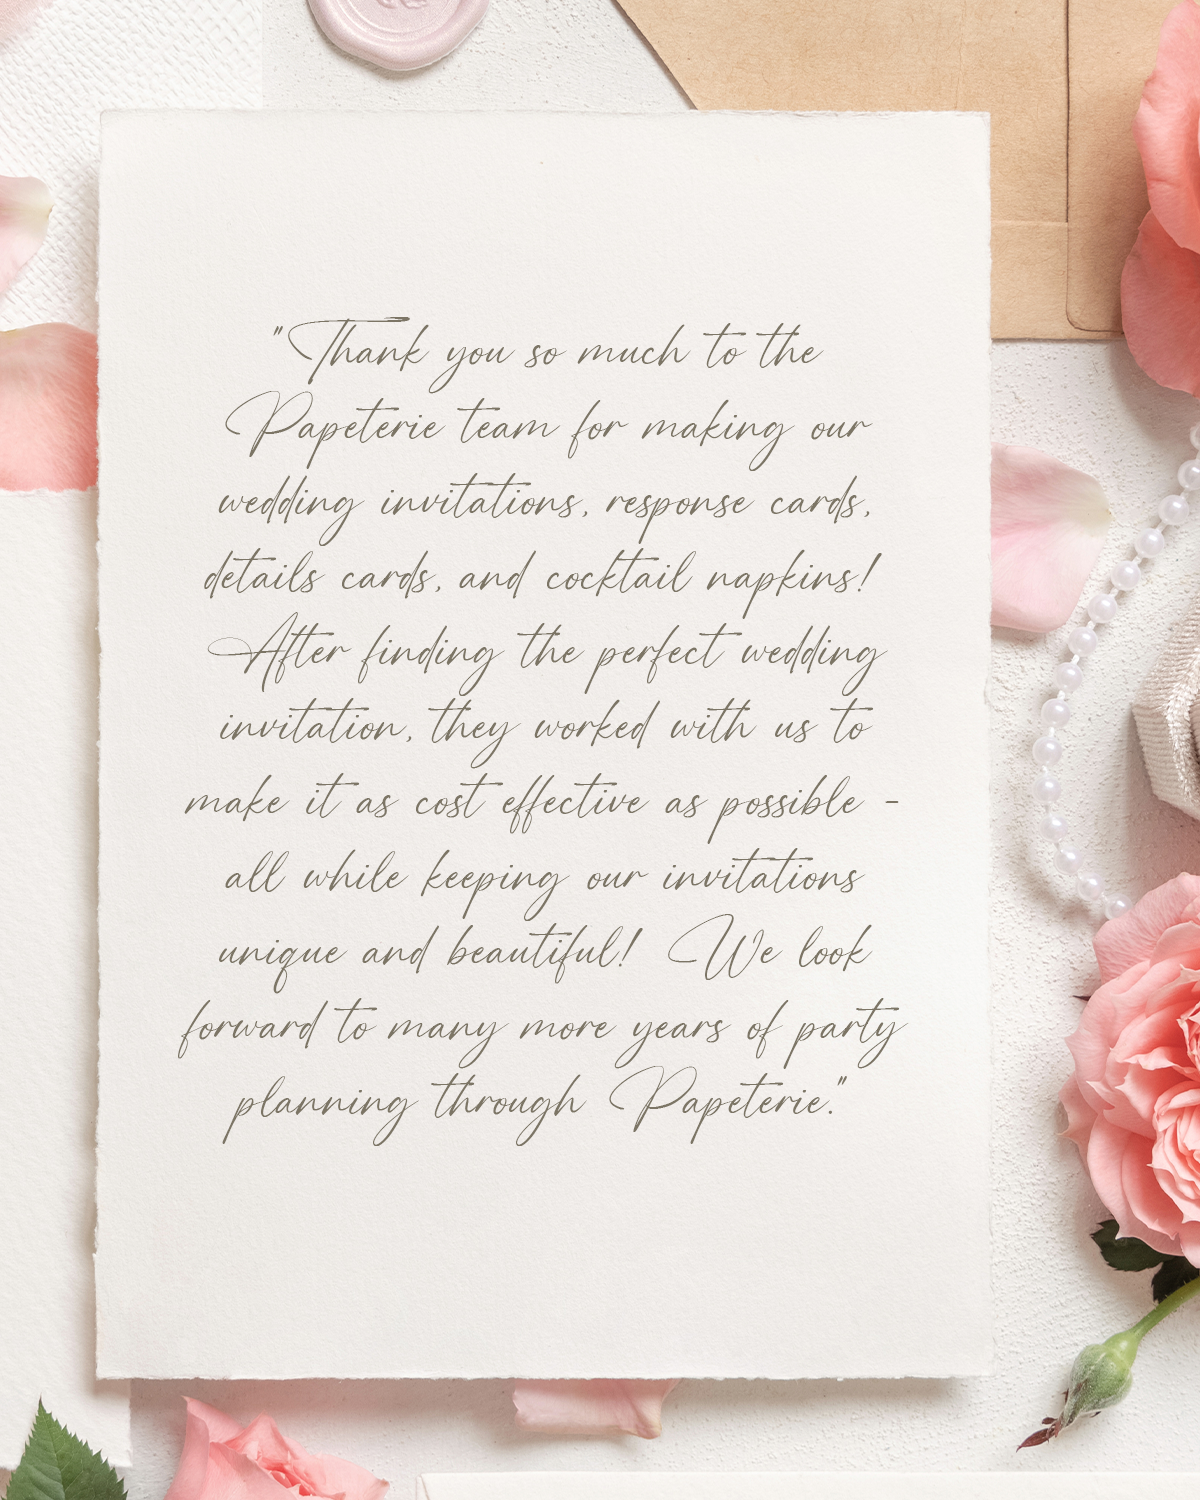 "Thank you so much to the
Papeterie team for making our
wedding invitations, response cards,
details cards, and cocktail napkins!
After finding the perfect wedding
invitation, they worked with us to
make it as cost effective as possible -
all while keeping our invitations
unique and beautiful! We look
forward to many more years of party
planning through Papeterie."